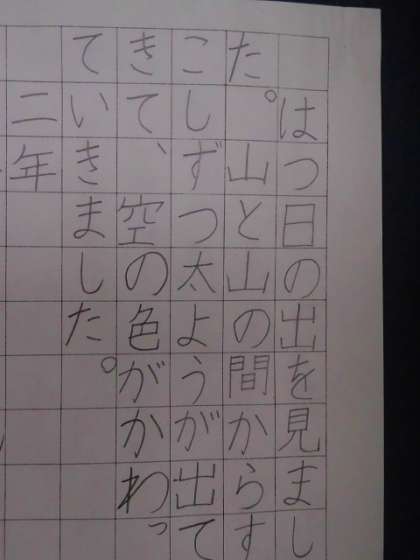 はつ日の出を見まし
た。山と山の間からす
こしずつ太ようが出て
きて、空の色がかわっ
ていきました。
二年